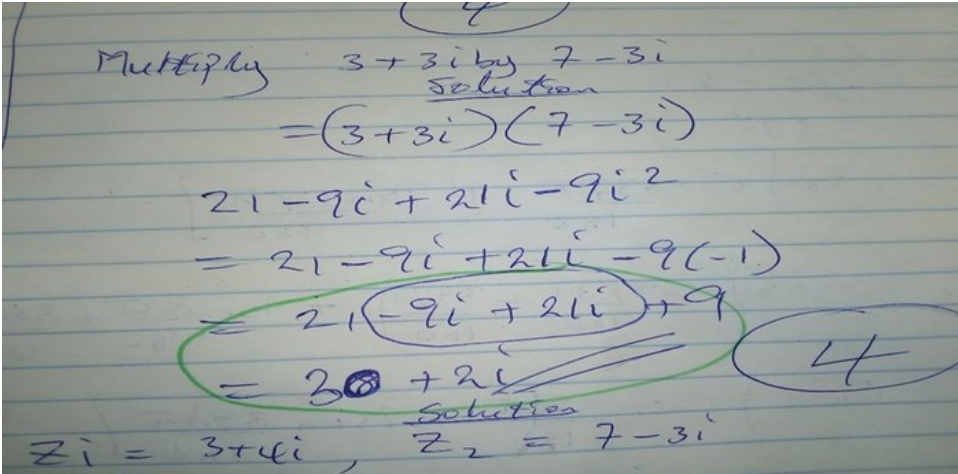 4
Multiply 3 + 3i by 7 - 3i
Solution
= (3 + 3i) (7 - 3i)
21 - 9i + 21i - 9i²
= 21 - 9i + 21i - 9(-1)
= 21 - 9i + 21i + 9
4
= 30 + 2i
Solution
Zi = 3+4i, Z₂ = 7-3i